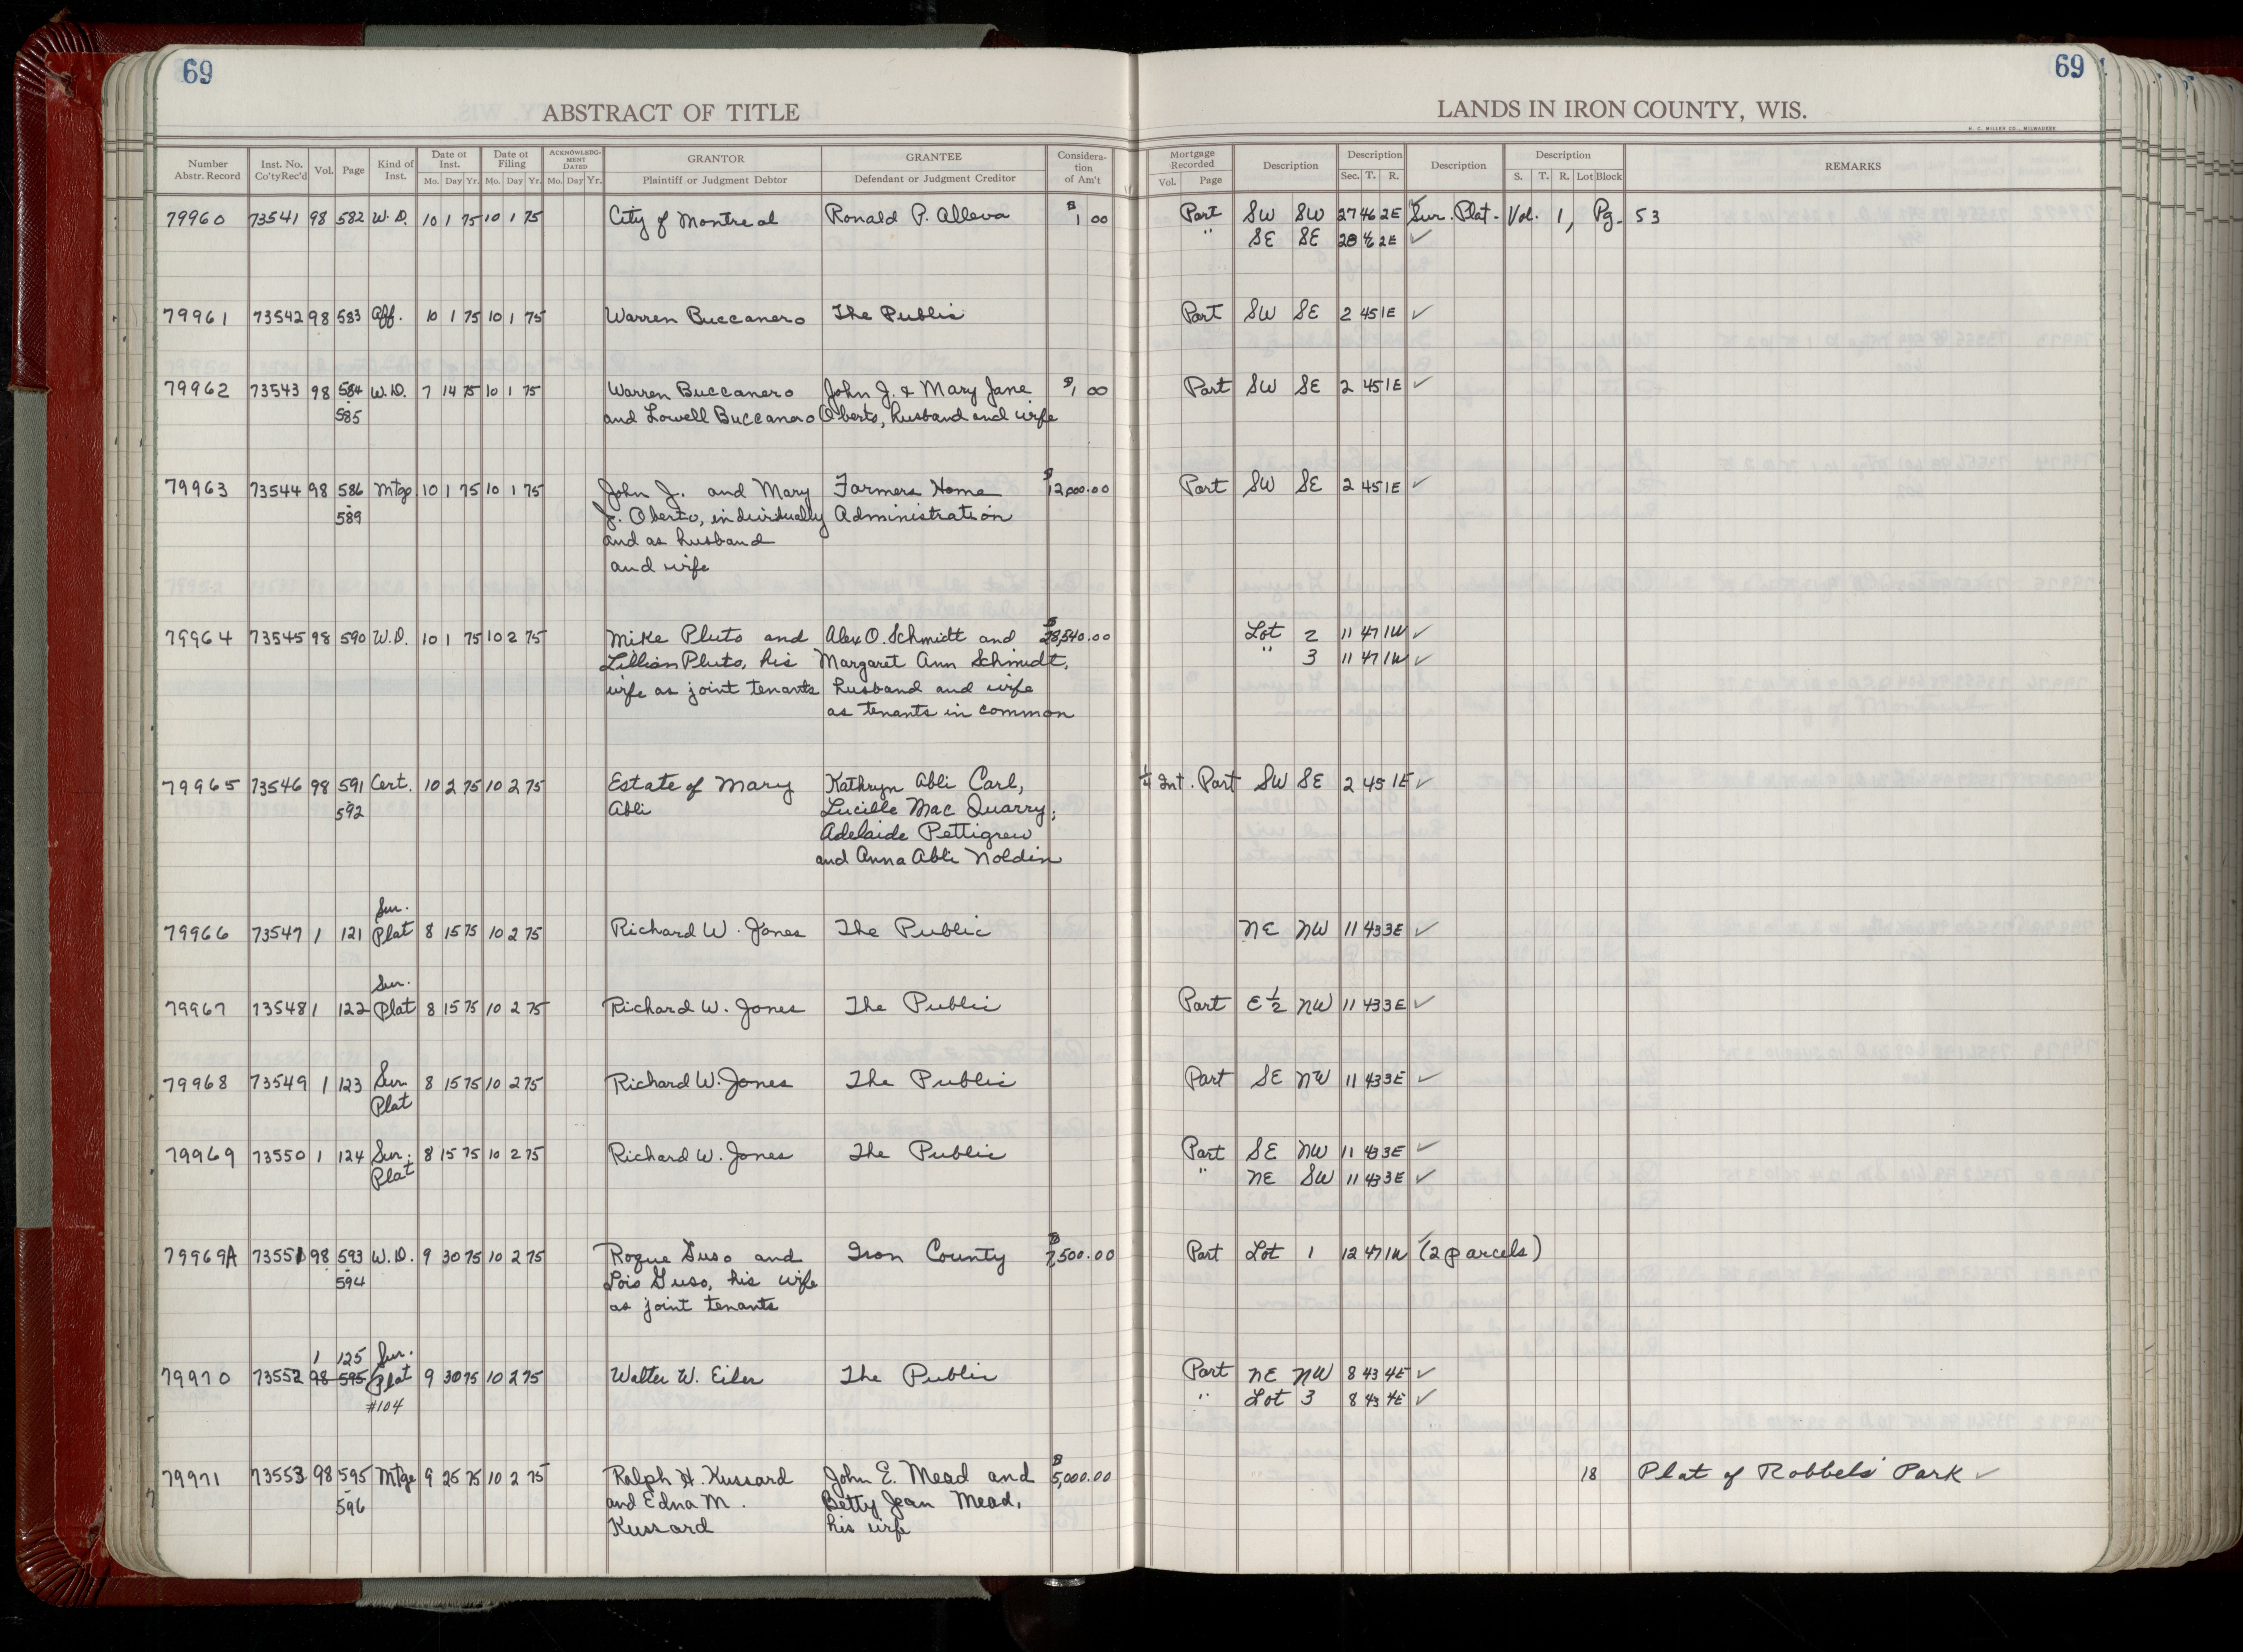 69
69
ABSTRACT OF TITLE
LANDS IN IRON COUNTY, WIS.
H. C. MILLER CO., MILWAUKEE
Number Abstr. Record Inst. No. Co'tyRec'd Vol. Page Kind of Inst. Date of Inst. Mo. Day Yr. Date of Filing Mo. Day Yr. ACKNOWLEDGMENT DATED Mo. Day Yr. GRANTOR Plaintiff or Judgment Debtor GRANTEE Defendant or Judgment Creditor Consideration of Am't Mortgage Recorded Vol. Page Description Description Sec. T. R. Description Description S. T. R. Lot Block REMARKS
79960 73541 98 582 W.D. 10 1 75 10 1 75 City of Montreal Ronald P. Alleva $1 00 Part SW SW 27 46 2E Sur. Plat - Vol. 1, Pg. 53
" SE SE 28 46 2E ✓
79961 73542 98 583 Aff. 10 1 75 10 1 75 Warren Buccanero The Public Part SW SE 2 45 1E ✓
79962 73543 98 584 W.D. 7 14 75 10 1 75 Warren Buccanero John J. & Mary Jane $1 00 Part SW SE 2 45 1E ✓
- 585 and Lowell Buccanero Oberto, husband and wife
79963 73544 98 586 Mtg 10 1 75 10 1 75 John J. and Mary Farmers Home $12,000.00 Part SW SE 2 45 1E ✓
- 589 J. Oberto, individually Administration
and as husband
and wife
79964 73545 98 590 W.D. 10 1 75 10 2 75 Mike Pluto and Alex O. Schmidt and $28,540.00 Lot 2 11 47 1W ✓
Lillian Pluto, his Margaret Ann Schmidt, " 3 11 47 1W ✓
wife as joint tenants husband and wife
as tenants in common
79965 73546 98 591 Cert. 10 2 75 10 2 75 Estate of Mary Kathryn Abli Carl, 1/4 Int. Part SW SE 2 45 1E ✓
- 592 Abli Lucille Mac Quarry,
Adelaide Pettigrew
and Anna Abli Noldin
Sur.
79966 73547 1 121 Plat 8 15 75 10 2 75 Richard W. Jones The Public NE NW 11 43 3E ✓
Sur.
79967 73548 1 122 Plat 8 15 75 10 2 75 Richard W. Jones The Public Part E 1/2 NW 11 43 3E ✓
79968 73549 1 123 Sur. 8 15 75 10 2 75 Richard W. Jones The Public Part SE NW 11 43 3E ✓
Plat
79969 73550 1 124 Sur. 8 15 75 10 2 75 Richard W. Jones The Public Part SE NW 11 43 3E ✓
Plat " NE SW 11 43 3E ✓
79969A 73551 98 593 W.D. 9 30 75 10 2 75 Roque Guso and Iron County $7,500.00 Part Lot 1 12 47 1W ✓ (2 parcels)
- 594 Lois Guso, his wife
as joint tenants
1 125 Sur.
79970 73552 98 595 Plat 9 30 75 10 2 75 Walter W. Eiler The Public Part NE NW 8 43 4E ✓
#104 " Lot 3 8 43 4E ✓
79971 73553 98 595 Mtge 9 25 75 10 2 75 Ralph H. Kussard John E. Mead and $5,000.00 18 Plat of Robbels' Park ✓
- 596 and Edna M. Betty Jean Mead,
Kussard his wife